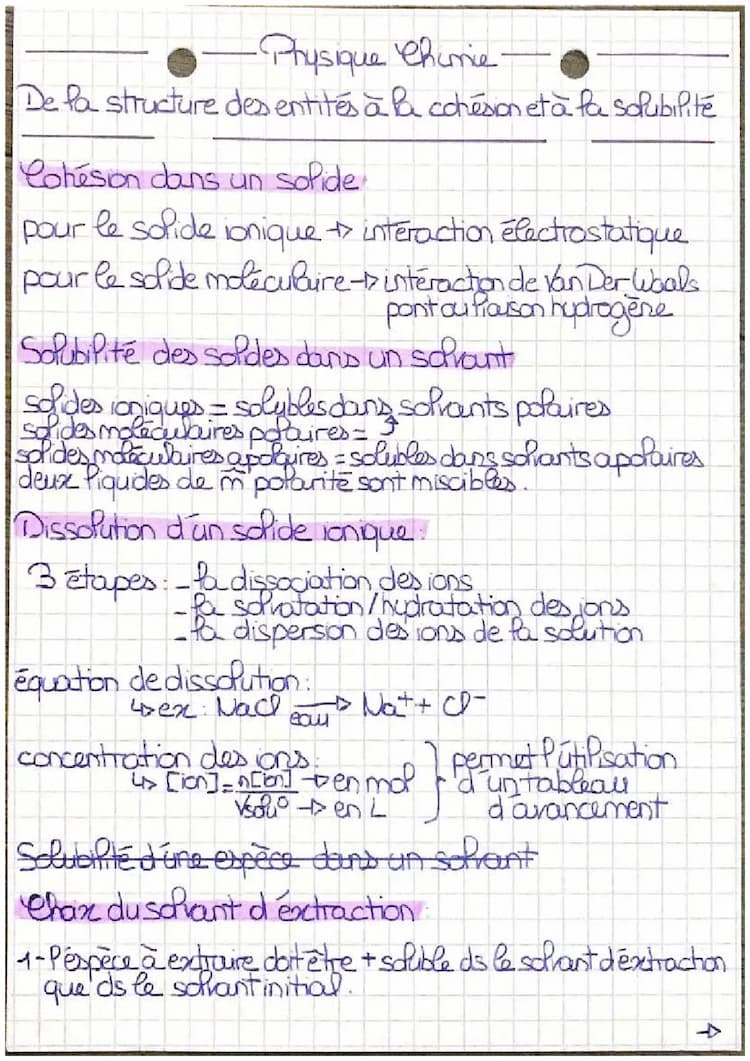 Physique Chimie
De la structure des entités à la cohésion et à la solubilité
Cohésion dans un solide
pour le solide ionique → intéraction électrostatique
pour le solide moléculaire → intéraction de Van Der Waals
pont ou liaison hydrogène
Solubilité des soldes dans un solvant
solides ioniques = solubles dans solvants polaires
solides moléculaires polaires = ↑
solides moléculaires apolaires = solubles dans solvants apolaires
deux liquides de m̂ polarité sont miscibles.
Dissolution d'un solide ionique:
3 étapes: - la dissociation des ions
- la solvatation/hydratation des ions
- la dispersion des ions de la solution
équation de dissolution:
↳ ex: NaCl → Na⁺ + Cl⁻
eau
concentration des ions: } permet l'utilisation
↳ [ion] = n[ion] → en mol d'un tableau
Vsol° → en L d'avancement
Solubilité d'une espèce dans un solvant
Choix du solvant d'éxtraction:
1- l'éspèce à extraire doit être + soluble ds le solvant d'éxtraction
que ds le solvant initial.
→